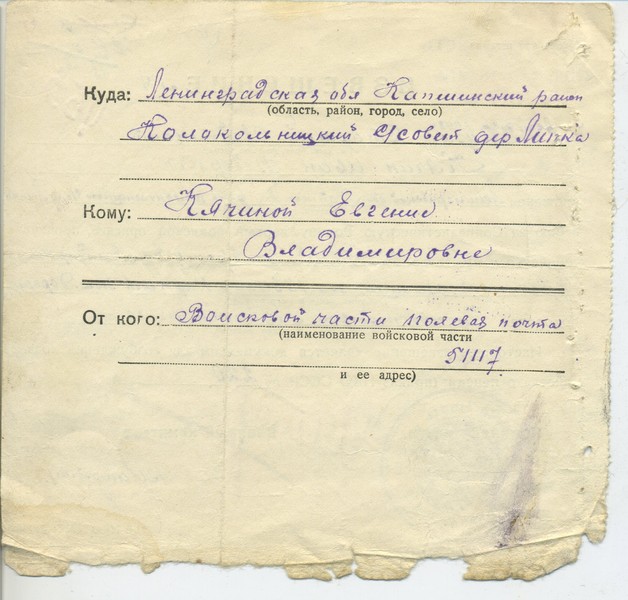 Куда: Ленинградская обл Капшинский район
(область, район, город, село)
Колокольницкий с/совет дер Липка
Кому: Кячиной Евгение
Владимировне
От кого: Воисковой части полевая почта
(наименование войсковой части
51117
и ее адрес)